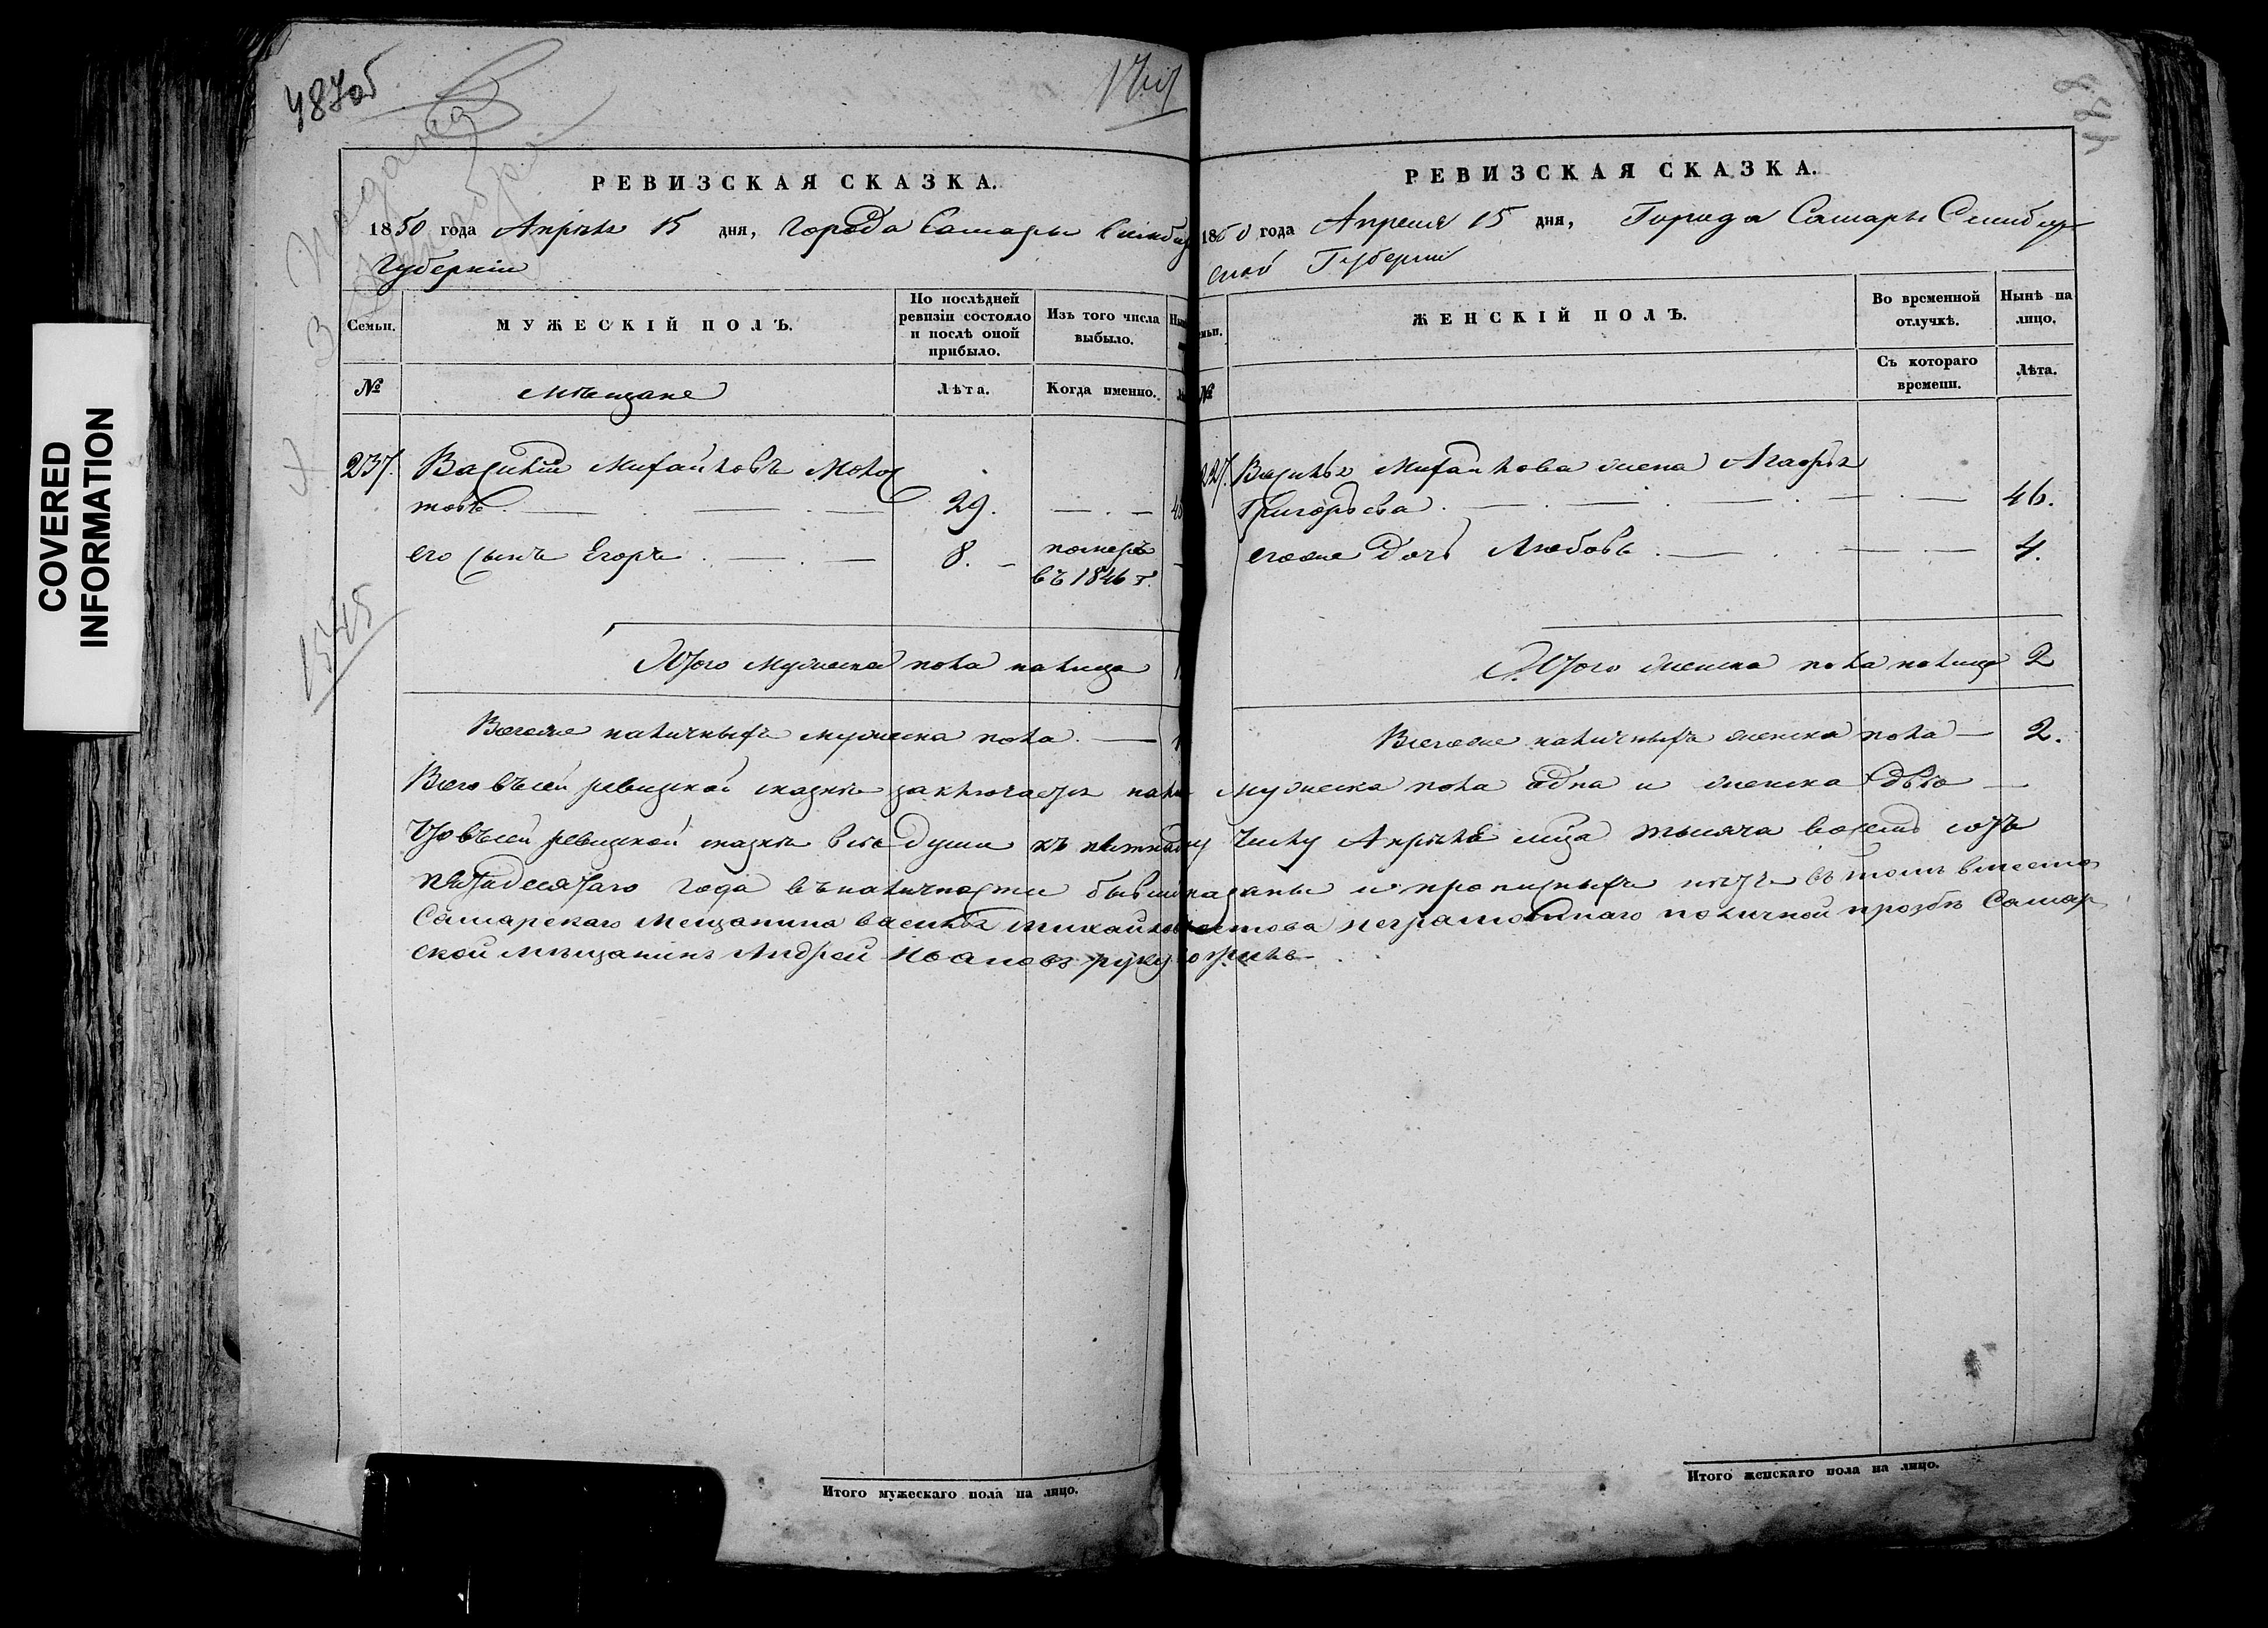 487об
Подана
3 Октября
1545
COVERED
INFORMATION
РЕВИЗСКАЯ СКАЗКА.
1850 года Апрѣля 15 дня, Города Самары Симбир
Губернии
Семьи.
МУЖЕСКІЙ ПОЛЪ.
По послѣдней ревизіи состояло и послѣ оной прибыло.
Изъ того числа выбыло.
№
мѣщане
Лѣта.
Когда именно.
237. Василій Михайловъ Моло
товъ 29.
его сынъ Егоръ 8. померъ
въ 1846 г.
Итого мужеска пола налицо
Всегоже наличныхъ мужеска пола
РЕВИЗСКАЯ СКАЗКА.
1850 года Апреля 15 дня, Города Самары Симбир
ской Губерніи
ЖЕНСКІЙ ПОЛЪ.
Во временной отлучкѣ.
Нынѣ на лицо.
№
Съ котораго времени.
Лѣта.
237. Василья Михайлова жена Агафья
Григорьева 46.
егоже дочь Любовь 4.
Итого женска пола налицо 2
Всегоже наличныхъ женска пола 2.
Всего въсей ревизской сказкѣ заключается мужеска пола одна и женска двѣ
Что въсей ревизской сказкѣ все души къ числу Апрѣля мца тысяча восемь сотъ
пятадесятаго года въналичности бывши показаны и прописныхъ нетъ въ томъ вместо
Самарскаго мещанина василья михайлова неграмотнаго поличной прозбѣ Самар
ской мѣщанинъ Андрей Ивановъ руку
Итого мужескаго пола на лицо.
Итого женскаго пола на лицо.